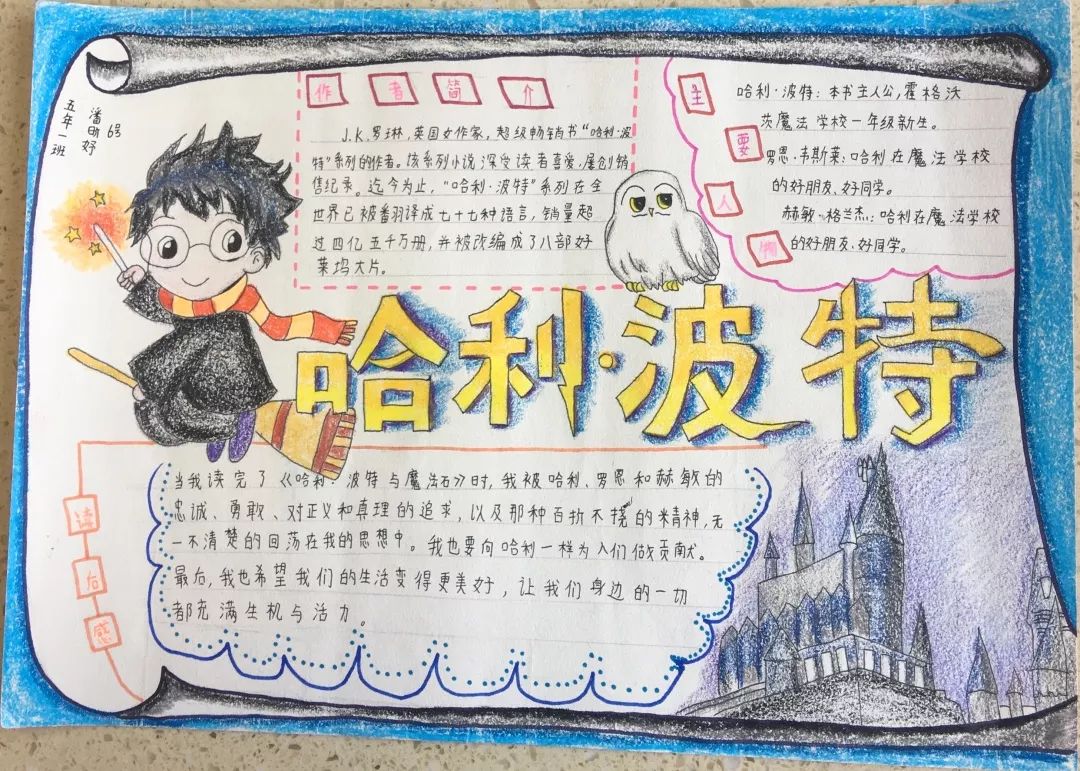 五年一班
潘昕妤
6号
作者简介
J.K.罗琳,英国女作家,超级畅销书“哈利·波
特”系列的作者。该系列小说深受读者喜爱,屡创销
售纪录。迄今为止,“哈利·波特”系列在全
世界已被番羽译成七十七种语言,销量超
过四亿五千万册,并被改编成了八部好
莱坞大片。
主要人物
哈利·波特:本书主人公,霍格沃
茨魔法学校一年级新生。
罗恩·韦斯莱:哈利在魔法学校
的好朋友、好同学。
赫敏·格兰杰:哈利在魔法学校
的好朋友、好同学。
哈利·波特
读后感
当我读完了《哈利·波特与魔法石》时,我被哈利、罗恩和赫敏的
忠诚、勇敢、对正义和真理的追求,以及那种百折不挠的精神,无
一不清楚的回荡在我的思想中。我也要向哈利一样为人们做贡献。
最后,我也希望我们的生活变得更美好,让我们身边的一切
都充满生机与活力。